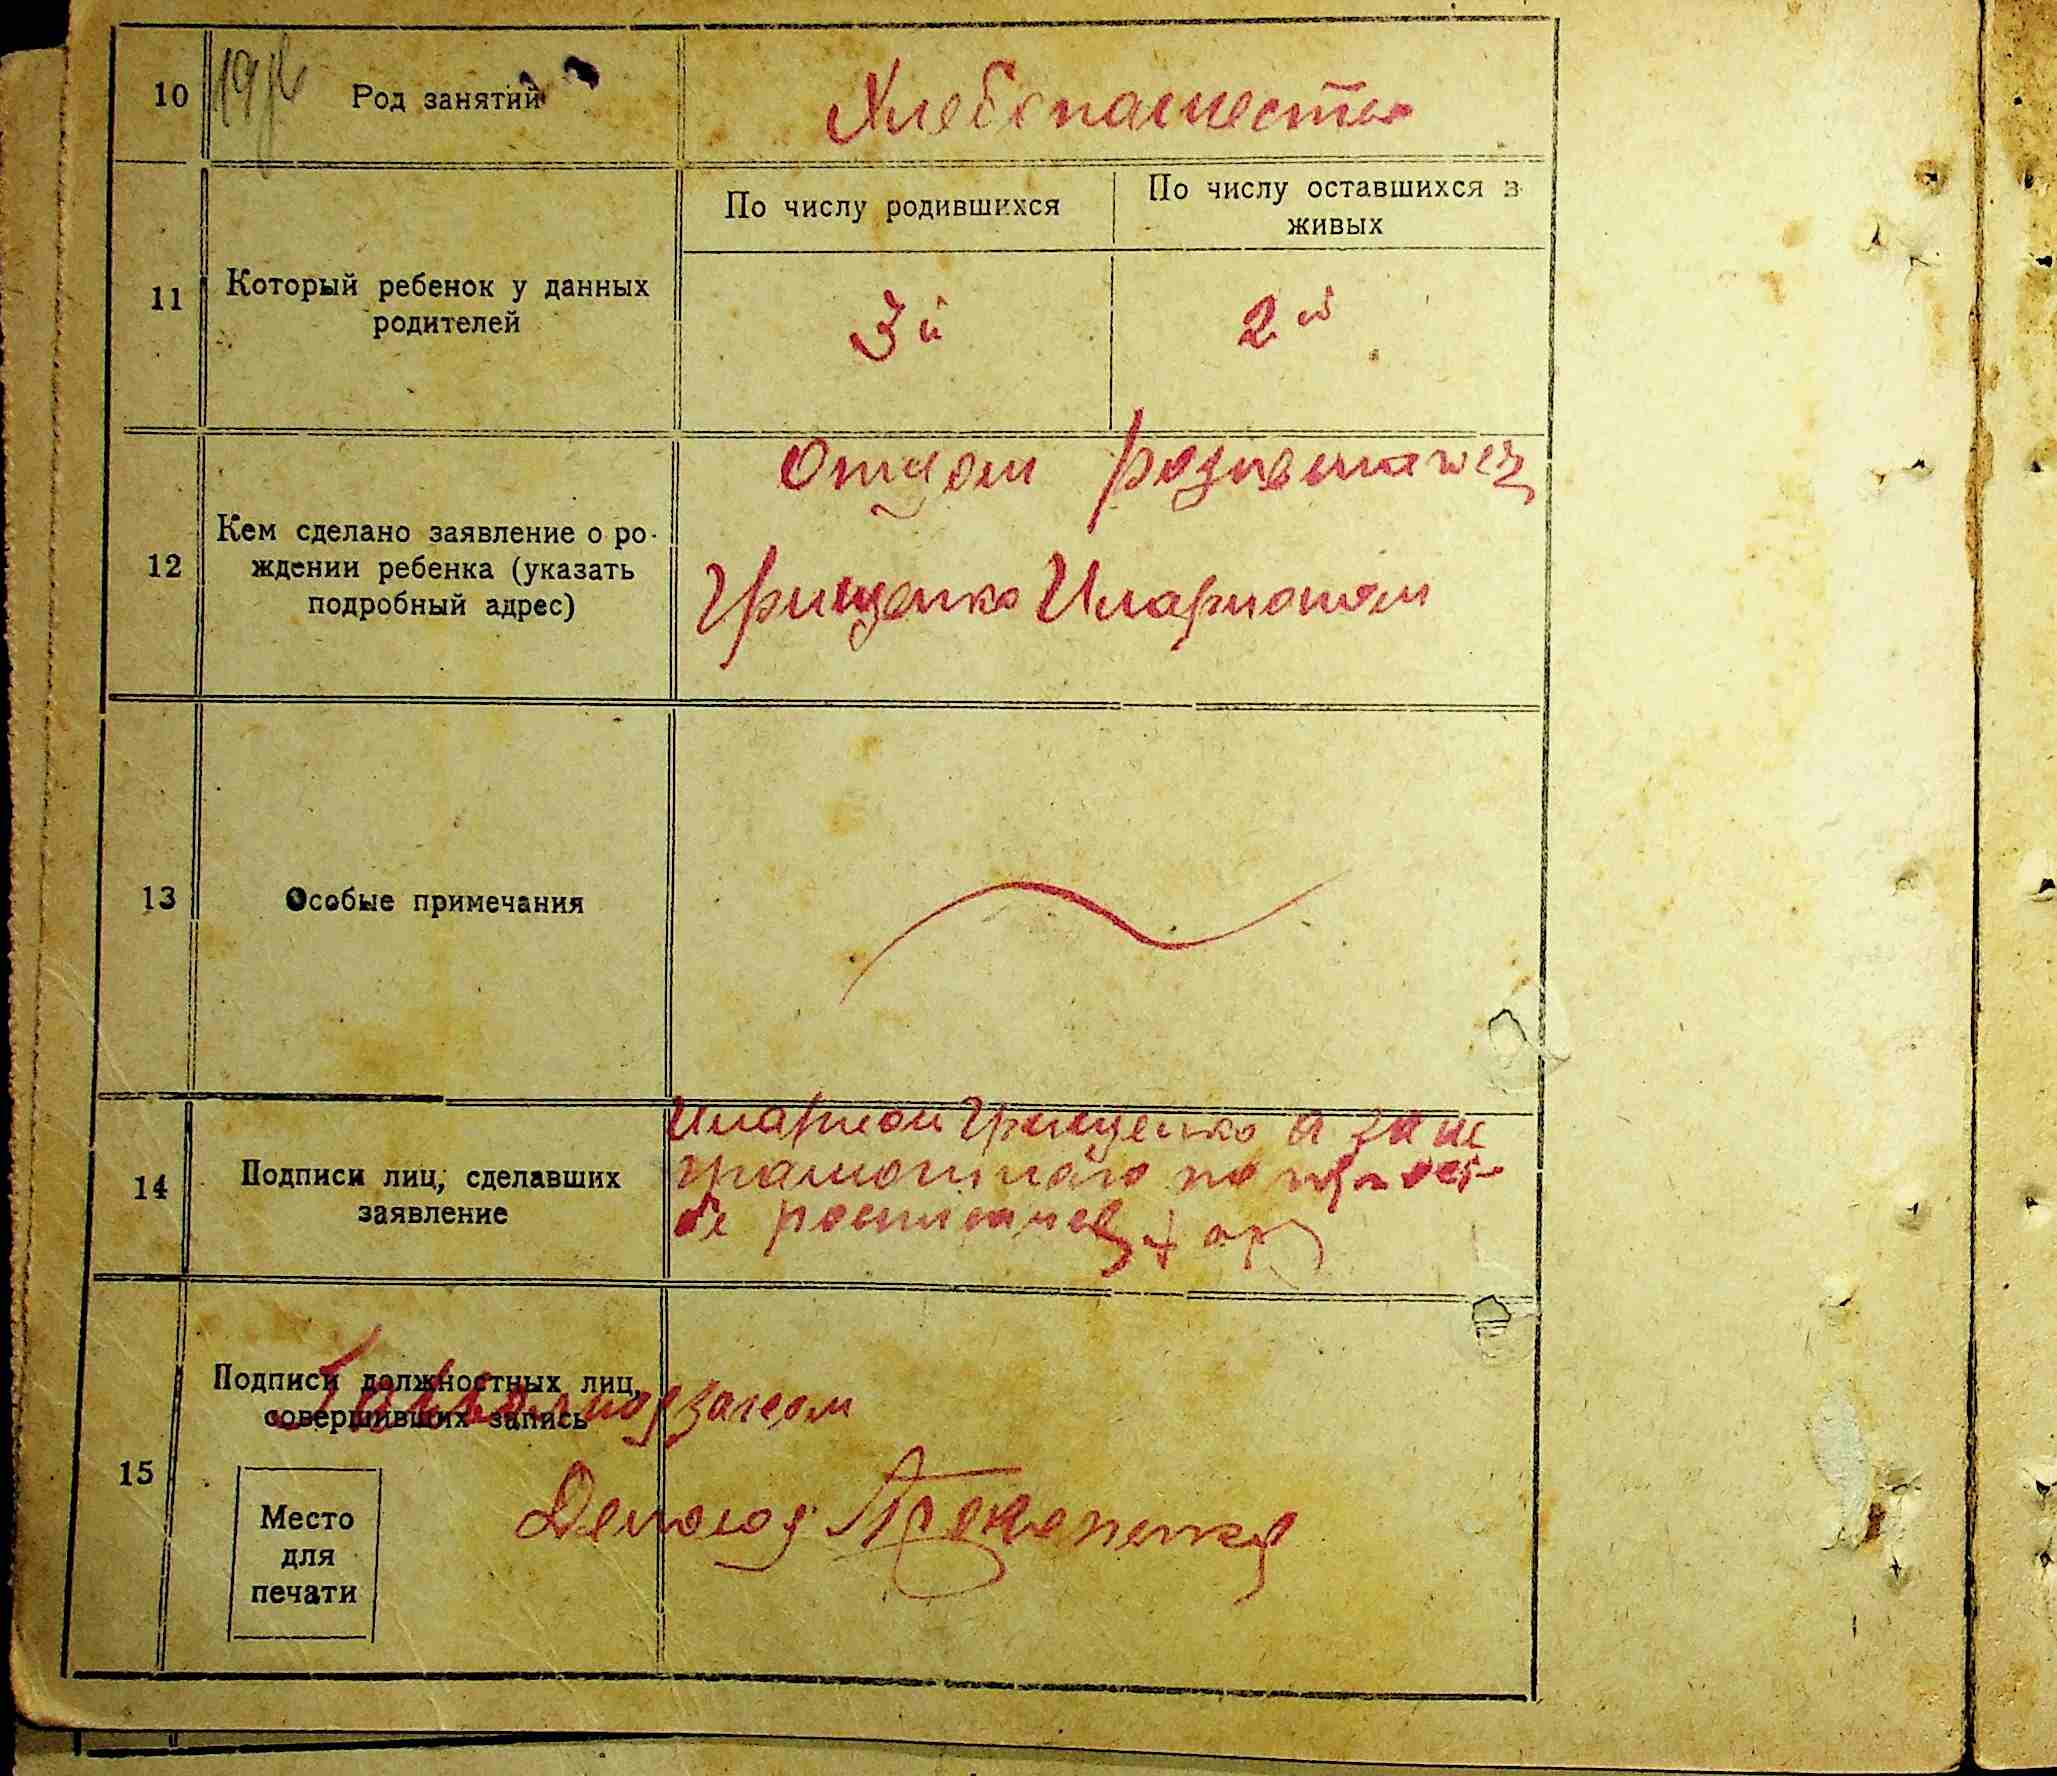 10
Род занятий
Хлебопашество
11
Который ребенок у данных
родителей
По числу родившихся
По числу оставшихся в
живых
3й
2й
12
Кем сделано заявление о ро-
ждении ребенка (указать
подробный адрес)
Отцом
Грищенко Иларионом
13
Особые примечания
14
Подписи лиц, сделавших
заявление
Иларион Грищенко а за не
грамотного по
бе
15
Подписи должностных лиц,
совершивших запись
Место
для
печати